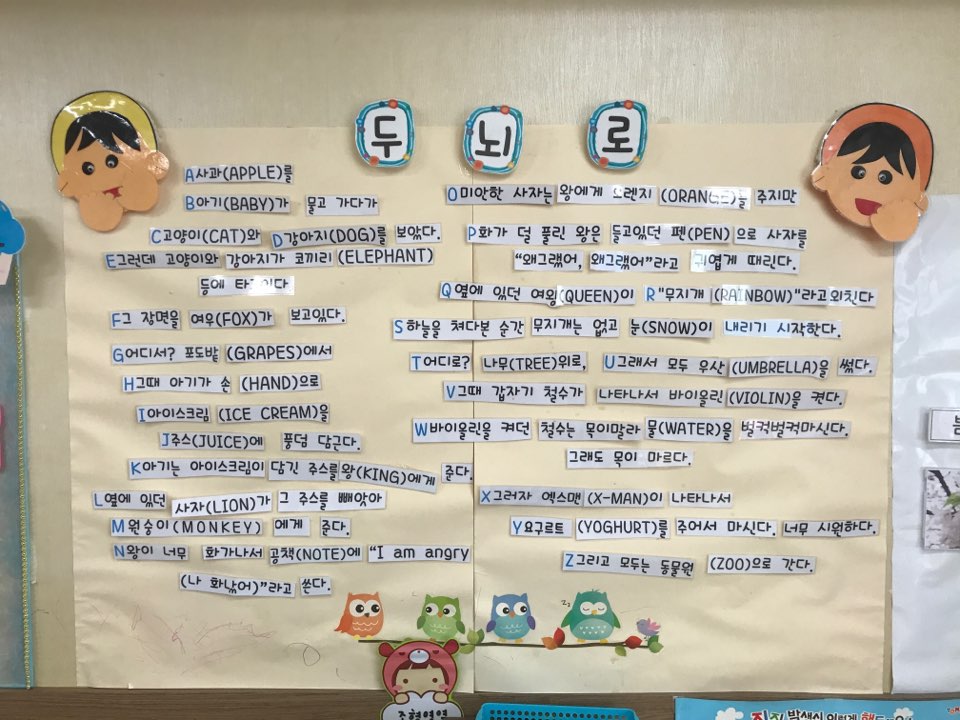 두뇌로
A사과(APPLE)를
B아기(BABY)가 물고 가다가
C고양이(CAT)와 D강아지(DOG)를 보았다.
E그런데 고양이와 강아지가 코끼리(ELEPHANT)
등에 타고있다
F그 장면을 여우(FOX)가 보고있다.
G어디서? 포도밭(GRAPES)에서
H그때 아기가 손(HAND)으로
I아이스크림(ICE CREAM)을
J주스(JUICE)에 풍덩 담근다.
K아기는 아이스크림이 담긴 주스를 왕(KING)에게 준다.
L옆에 있던 사자(LION)가 그 주스를 빼앗아
M원숭이(MONKEY)에게 준다.
N왕이 너무 화가나서 공책(NOTE)에 "I am angry
(나 화났어)"라고 쓴다.
O미안한 사자는 왕에게 오렌지(ORANGE)를 주지만
P화가 덜 풀린 왕은 들고있던 펜(PEN)으로 사자를
"왜그랬어, 왜그랬어"라고 귀엽게 때린다.
Q옆에 있던 여왕(QUEEN)이 R"무지개(RAINBOW)"라고 외친다
S하늘을 쳐다본 순간 무지개는 없고 눈(SNOW)이 내리기 시작한다.
T어디로? 나무(TREE)위로, U그래서 모두 우산(UMBRELLA)을 썼다.
V그때 갑자기 철수가 나타나서 바이올린(VIOLIN)을 켠다.
W바이올린을 켜던 철수는 목이말라 물(WATER)을 벌컥벌컥마신다.
그래도 목이 마르다.
X그러자 엑스맨(X-MAN)이 나타나서
Y요구르트(YOGHURT)를 주어서 마신다. 너무 시원하다.
Z그리고 모두는 동물원(ZOO)으로 간다.